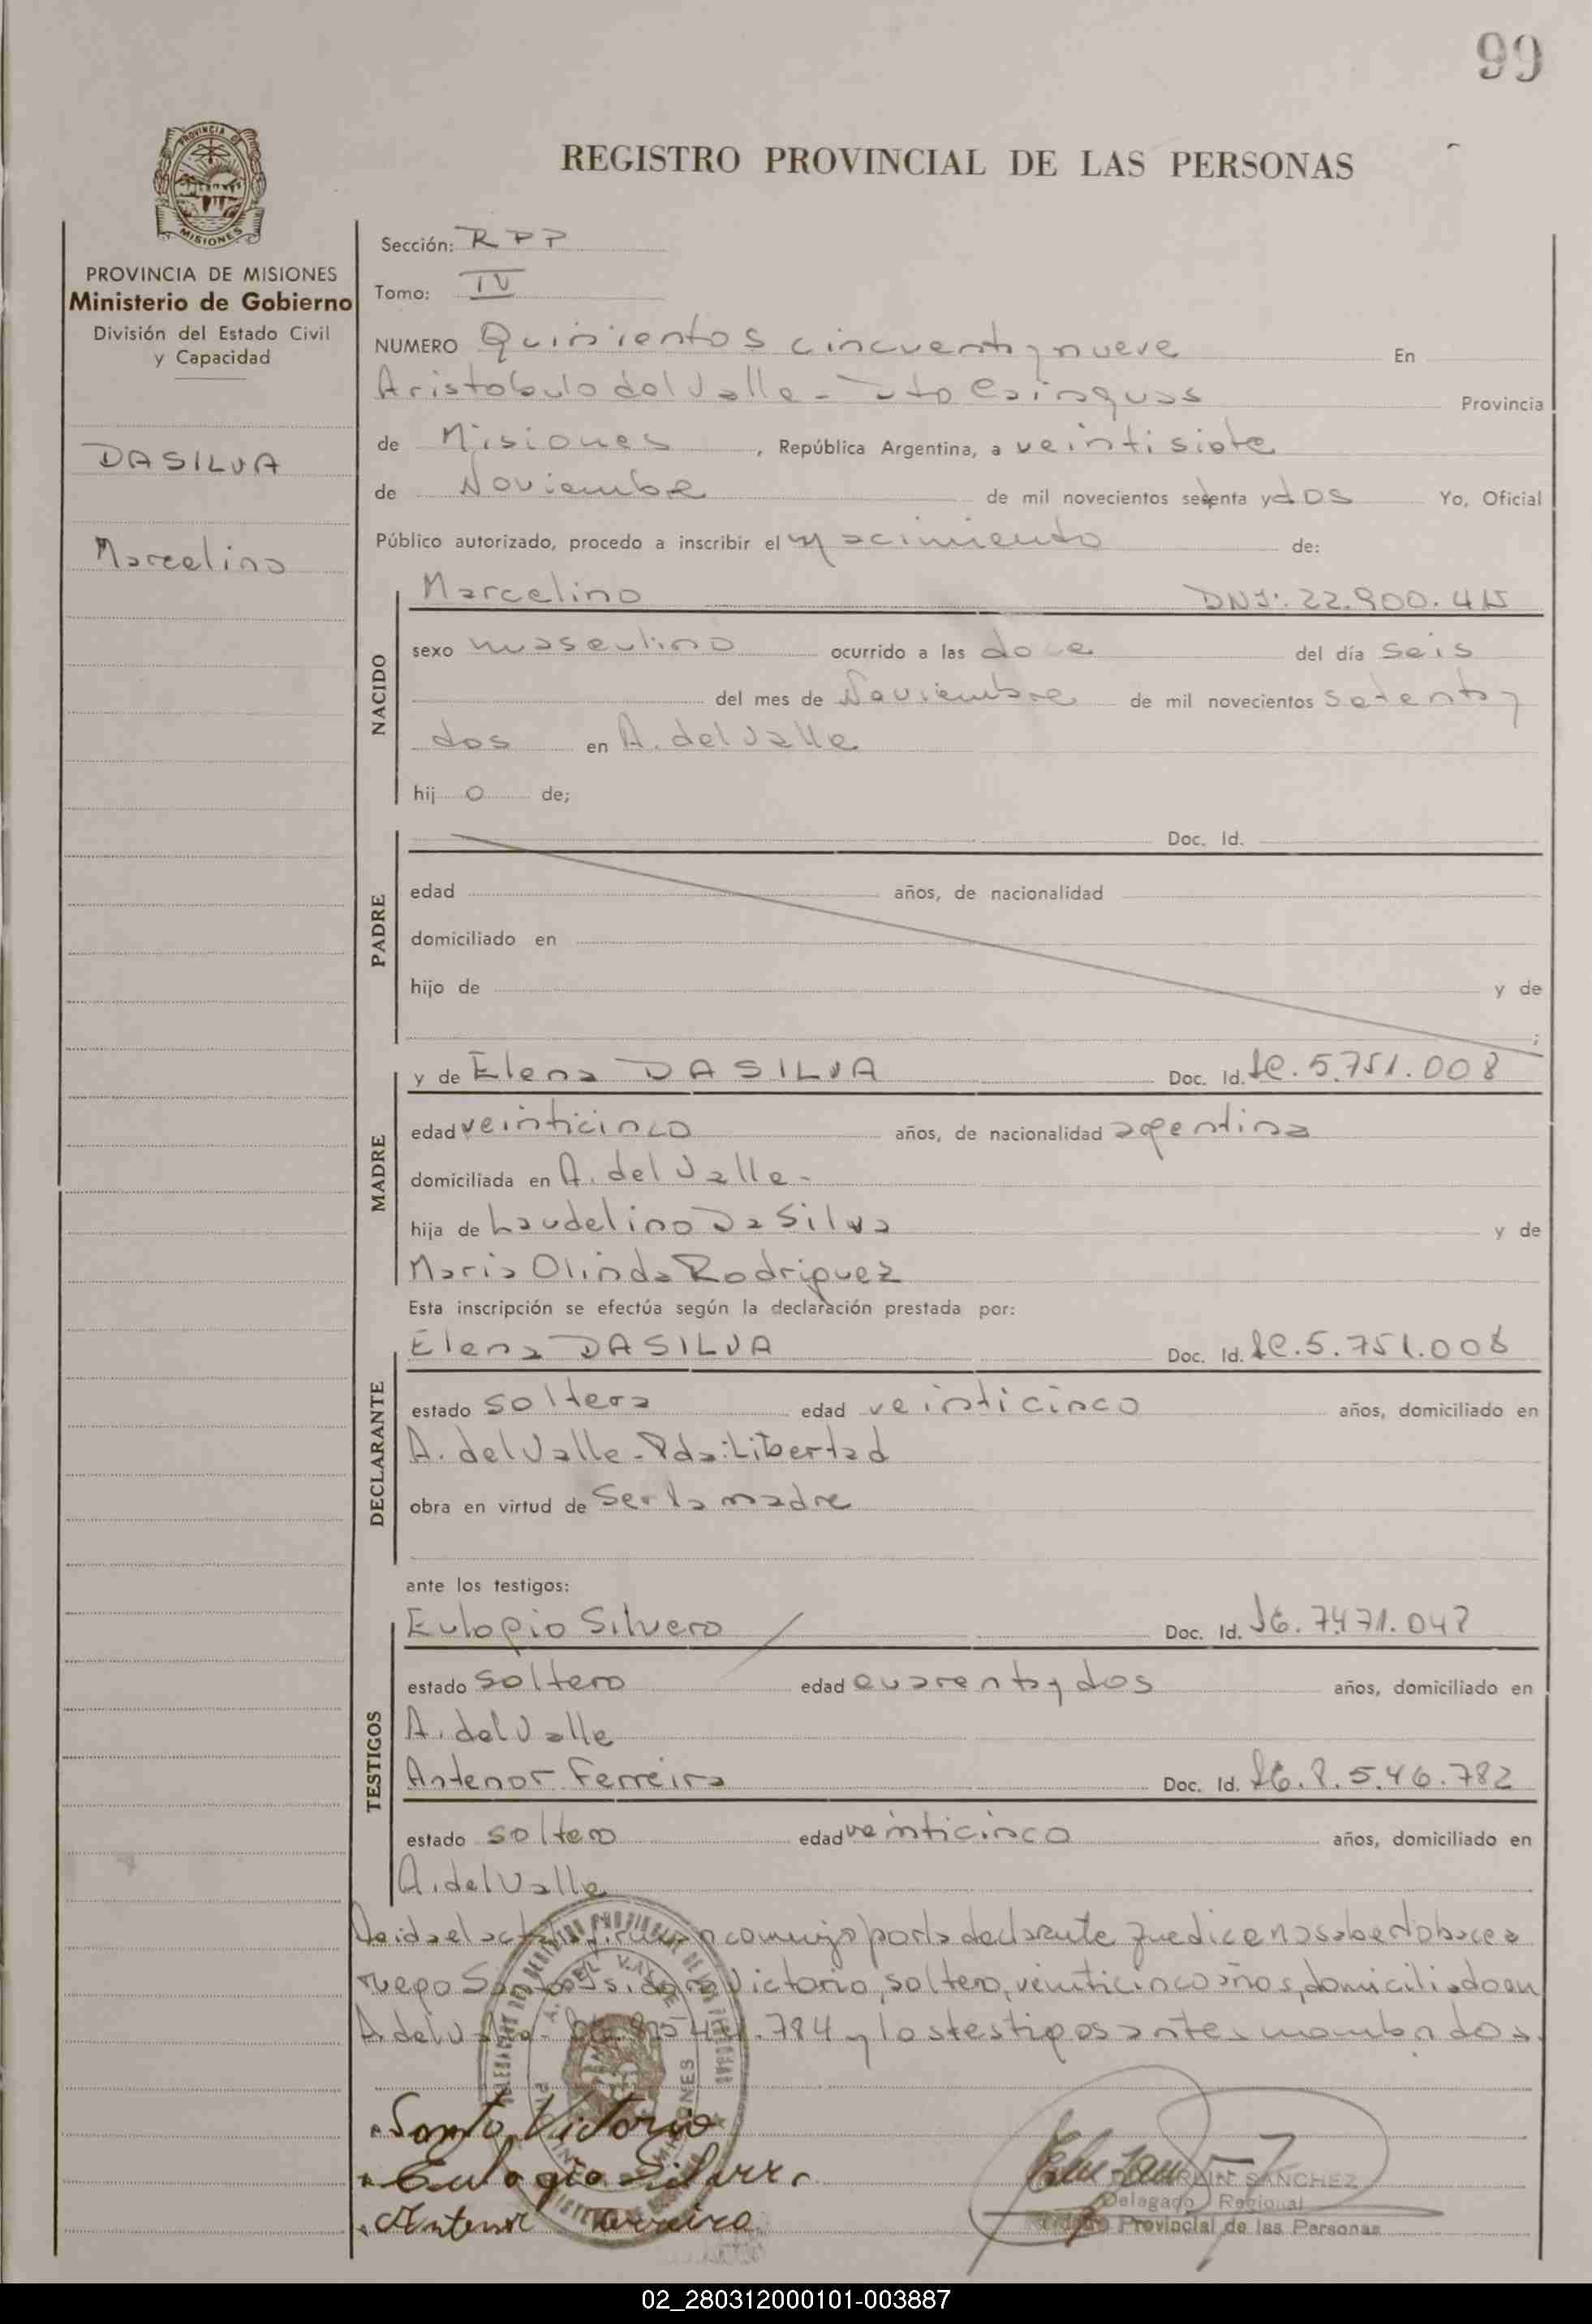 99
REGISTRO PROVINCIAL DE LAS PERSONAS
PROVINCIA DE MISIONES
Ministerio de Gobierno
División del Estado Civil
y Capacidad
DASILVA
Marcelino
Sección: RPP
Tomo: IV
NUMERO Quinientos cincuenta y nueve En
Aristobulo del Valle - Dto Cainguas Provincia
de Misiones, República Argentina, a veintisiete
de Noviembre de mil novecientos setenta y dos Yo, Oficial
Público autorizado, procedo a inscribir el nacimiento de:
NACIDO
Marcelino DNI: 22.900.415
sexo masculino ocurrido a las doce del día seis
del mes de Noviembre de mil novecientos setenta y
dos en A. del Valle
hijo de;
PADRE
Doc. Id.
edad años, de nacionalidad
domiciliado en
hijo de y de
;
MADRE
y de Elena DASILVA Doc. Id. LC. 5.751.008
edad veinticinco años, de nacionalidad agentina
domiciliada en A. del Valle -
hija de Laudelino Da Silva y de
Maria Olinda Rodriguez
Esta inscripción se efectúa según la declaración prestada por:
DECLARANTE
Elena DASILVA Doc. Id. LC. 5.751.008
estado soltera edad veinticinco años, domiciliado en
A. del Valle - Pda: Libertad
obra en virtud de Ser la madre
ante los testigos:
TESTIGOS
Eulogio Silvero Doc. Id. 7.471.047
estado soltero edad cuarenta y dos años, domiciliado en
A. del Valle
Antenor Ferreira Doc. Id. 8.546.782
estado soltero edad veinticinco años, domiciliado en
A. del Valle
Leida el acta la firman conmigo por la declarante que dice no saber lo hace a
ruego Santo Isidoro Victorio, soltero, veinticinco años, domiciliado en
A del Valle - .784 y los testigos antes nombrados.
Santo Victorio
Eulogio
Antenor Ferreira
SANCHEZ
Delegado Regional
Provincial de las Personas
A. DEL VALLE
MISIONES
02_280312000101-003887